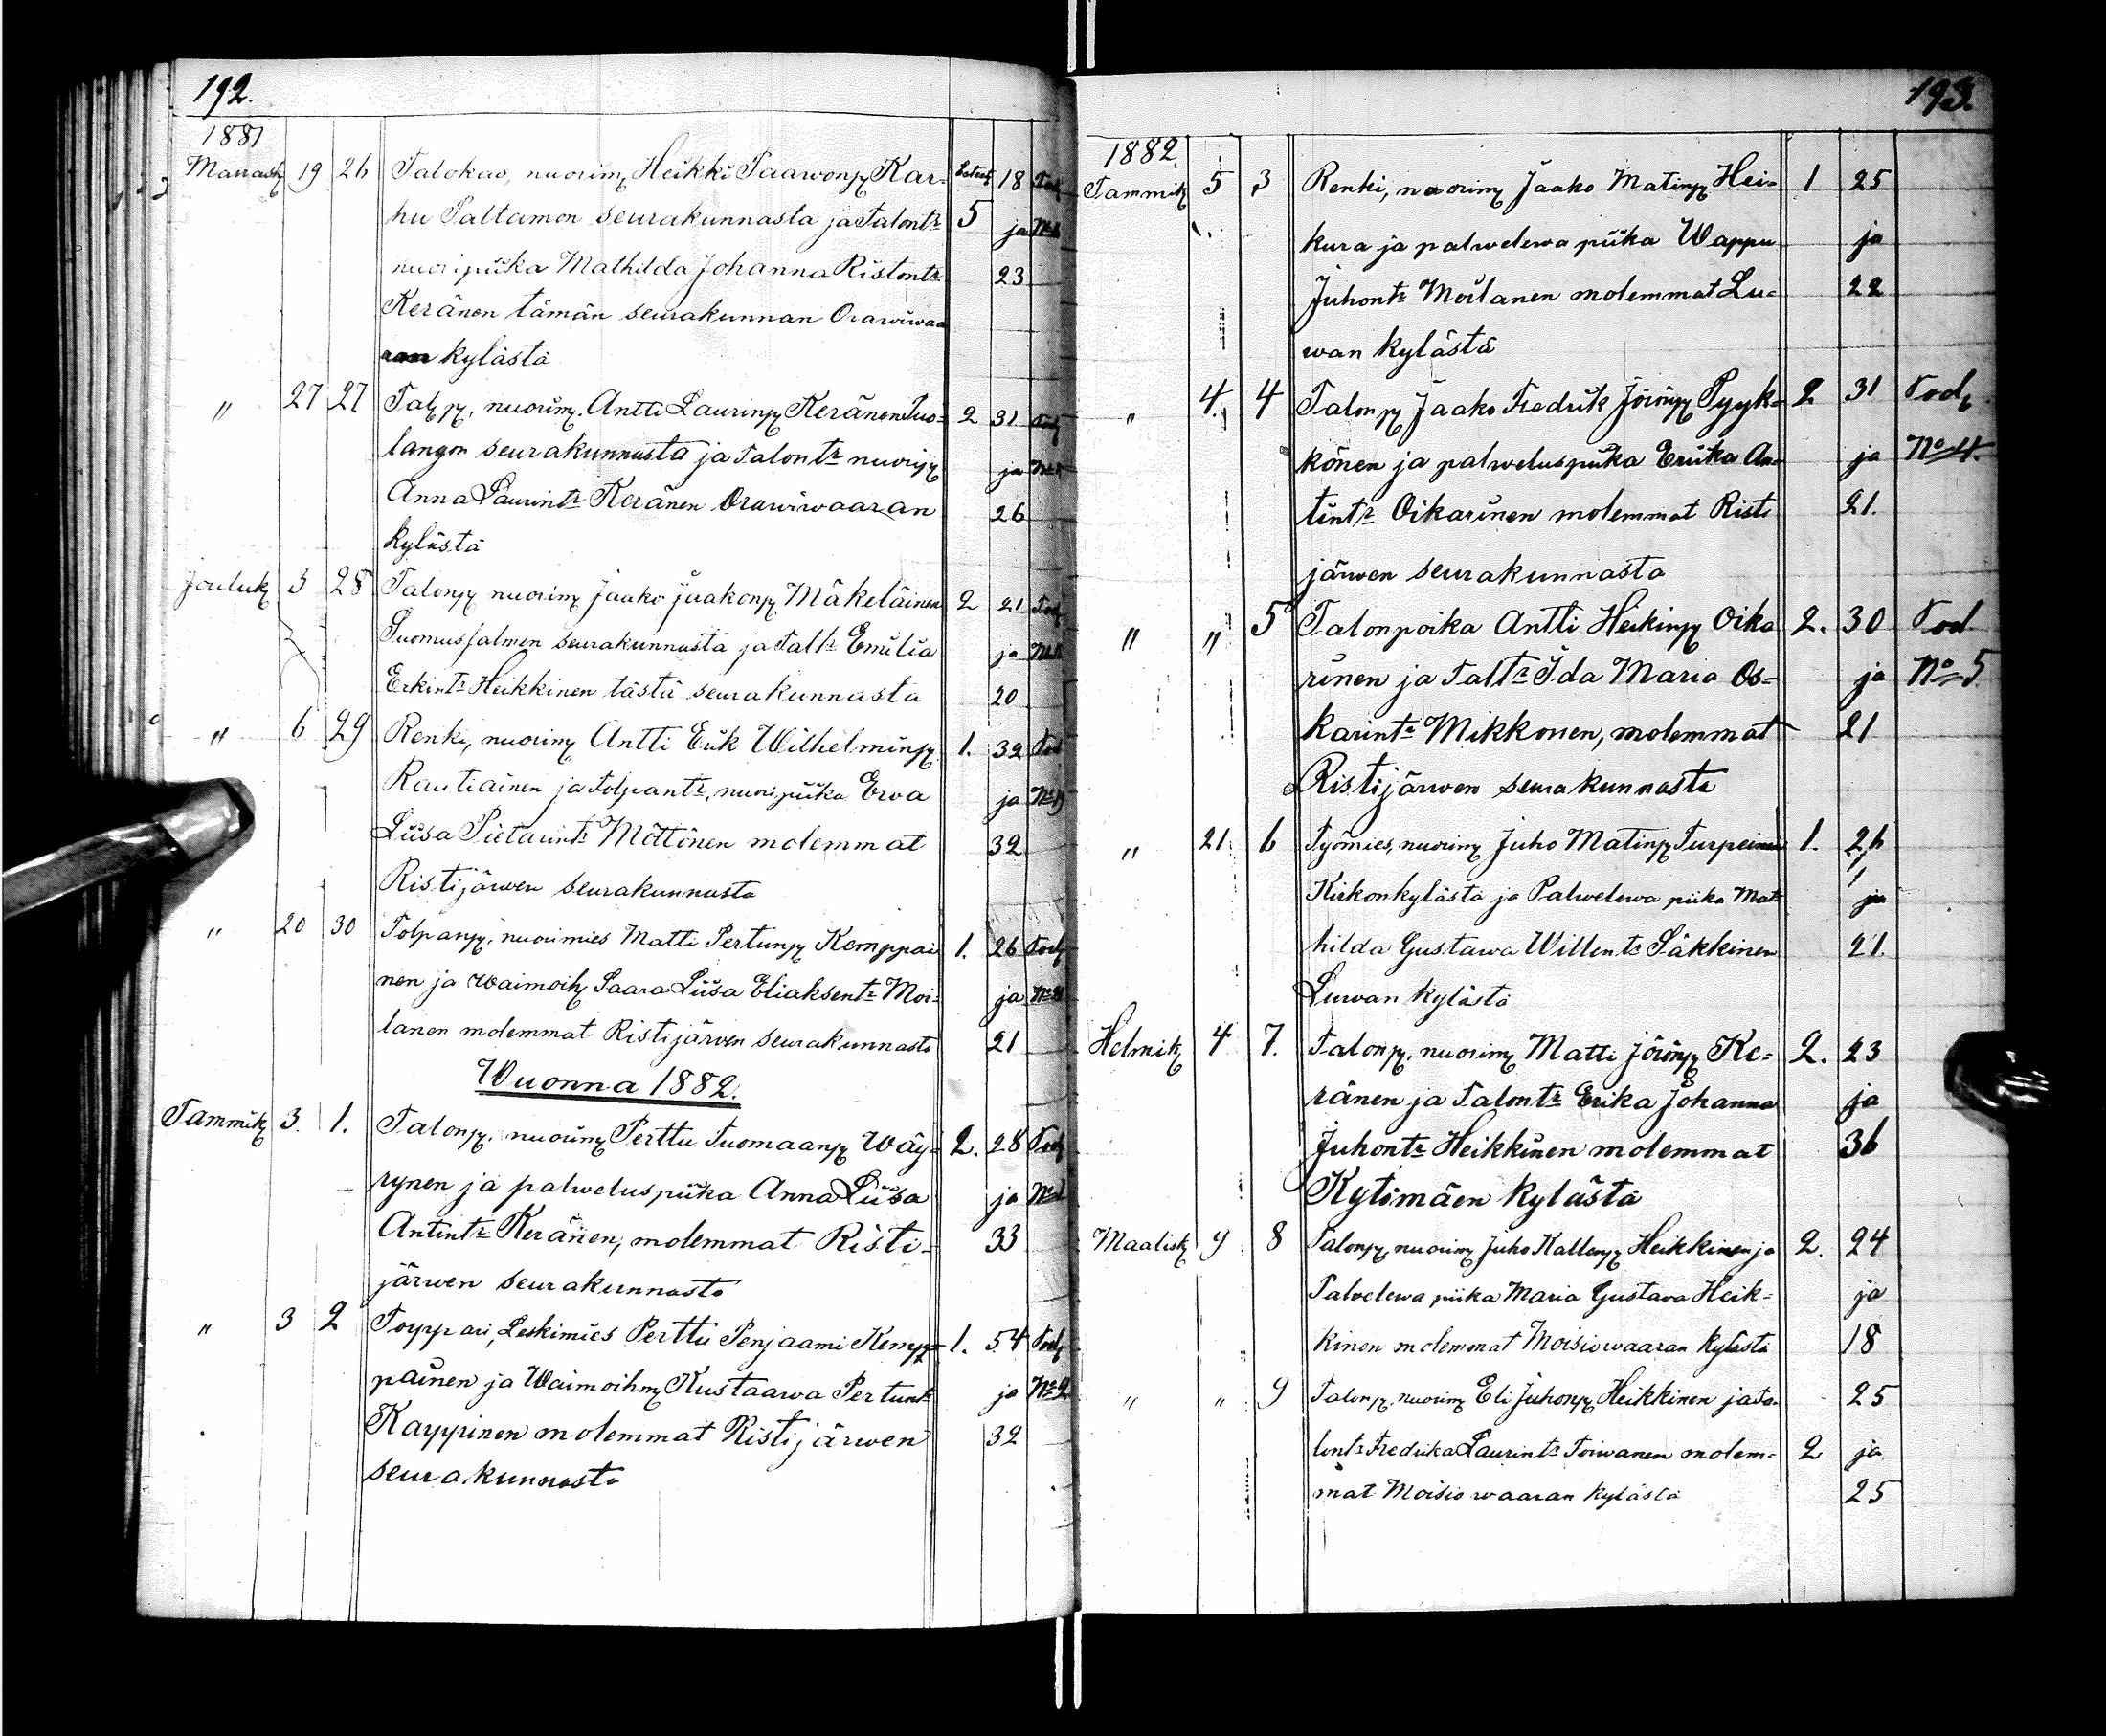 192.
1881
Marrask 19 26 Talokas, nuorim Heikki Paawonp Kar- 18 Tod
hu Paltamon seurakunnasta ja Talontr 5 ja No
nuoripiika Mathilda Johanna Ristontr 23
Keränen tämän seurakunnan Orawiwaa
ran kylästä
" 27 27 Talp, nuorim. Antti Laurinp Keränen Puo- 2 31 Tod
langon seurakunnasta ja Talontr nuorip ja No
Anna Laurintr Keränen Orawiwaaran 26
kylästä
Jouluk 3 28 Talonp nuorim Jaako Jaakonp Mäkeläinen 2 21 Tod
Suomussalmen seurakunnasta ja Taltr Emilia ja No
Erkintr Heikkinen tästä seurakunnasta 20
" 6 29 Renki, nuorim Antti Erik Wilhelminp 1. 32 Tod
Rautiainen ja Tolpantr, nuoripiika Ewa ja No
Liisa Pietarintr Möttönen molemmat 32
Ristijärwen seurakunnasta
" 20 30 Tolpanp, nuorimies Matti Pertunp Kemppai 1. 26 Tod
nen ja waimoih Saara Liisa Eliaksentr Moi- ja No
lanen molemmat Ristijärwen seurakunnasta 21
Wuonna 1882.
Tammik 3. 1. Talonp, nuorim Perttu Tuomaanp Wäy- 2. 28 Tod
rynen ja palweluspiika Anna Liisa ja No 1
Antintr Keränen, molemmat Risti- 33
järwen seurakunnasta
" 3 2 Torppari, Leskimies Perttu Penjaami Kemp- 1. 54 Tod
painen ja Waimoihm Kustaawa Pertuntr ja No 2
Karppinen molemmat Ristijärwen 32
seurakunnasta
193.
1882
Tammik 5 3 Renki, nuorim Jaako Matinp Hei- 1 25
kura ja palwelewa piika Wappu ja
Juhontr Moilanen molemmat Lu- 22
wan kylästä
" 4. 4 Talonp Jaako Fredrik Jörinp Pyyk- 2 31 Tod
könen ja palweluspiika Eriika An- ja No 4.
tintr Oikarinen molemmat Risti 21.
järwen seurakunnasta
" " 5 Talonpoika Antti Heikinp Oika 2. 30 Tod
rinen ja Taltr Ida Maria Os- ja No 5
karintr Mikkonen, molemmat 21
Ristijärwen seurakunnasta
" 21 6 Työmies, nuorim Juho Matinp Turpeinen 1. 26
Kirkonkylästä ja Palwelewa piika Mat ja
hilda Gustawa Willentr Säkkinen 21.
Luwan kylästä
Helmik 4 7. Talonp, nuorim Matti Jörinp Ke- 2. 23
ränen ja Talontr Erika Johanna ja
Juhontr Heikkinen molemmat 36
Kytömäen kylästä
Maalisk 9 8 Talonp, nuorim Juho Kallenp Heikkinen ja 2. 24
Palvelewa piika Maria Gustava Heik- ja
kinen molemmat Moisiowaaran kylästä 18
" " 9 Talonp, nuorim Eli Juhonp Heikkinen ja Ta- 25
lontr Fredrika Laurintr Toiwanen molem- 2 ja
mat Moisiowaaran kylästä 25